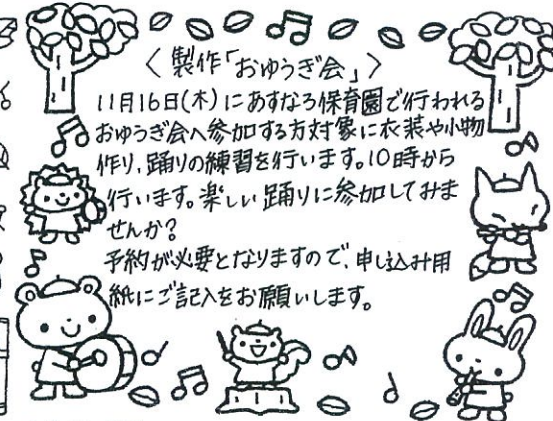 〈製作「おゆうぎ会」〉
11月16日(木)にあすなろ保育園で行われる
おゆうぎ会へ参加する方対象に衣装や小物
作り、踊りの練習を行います。10時から
行います。楽しい踊りに参加してみま
せんか?
予約が必要となりますので、申し込み用
紙にご記入をお願いします。